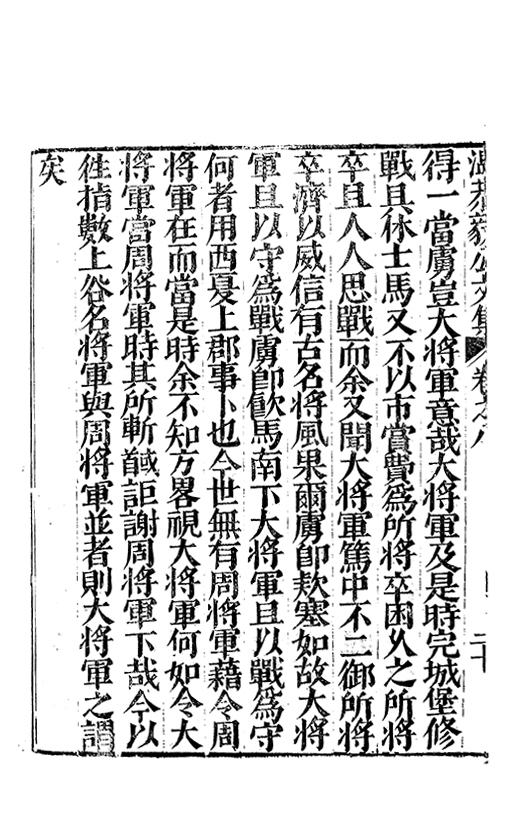 溫恭毅公文集 卷之八 二十
得一當虜豈大將軍意哉大將軍及是時完城堡修
戰具休士馬又不以市賞費爲所將卒困久之所將
卒且人人思戰而余又聞大將軍篤中不二御所將
卒濟以威信有古名將風果爾虜卽欵塞如故大將
軍且以守爲戰虜卽飮馬南下大將軍且以戰爲守
何者用西夏上郡事卜也今世無有周將軍藉令周
將軍在而當是時余不知方畧視大將軍何如令大
將軍當周將軍時其所斬馘詎謝周將軍下哉今以
徃指數上谷名將軍與周將軍並者則大將軍之謂
矣